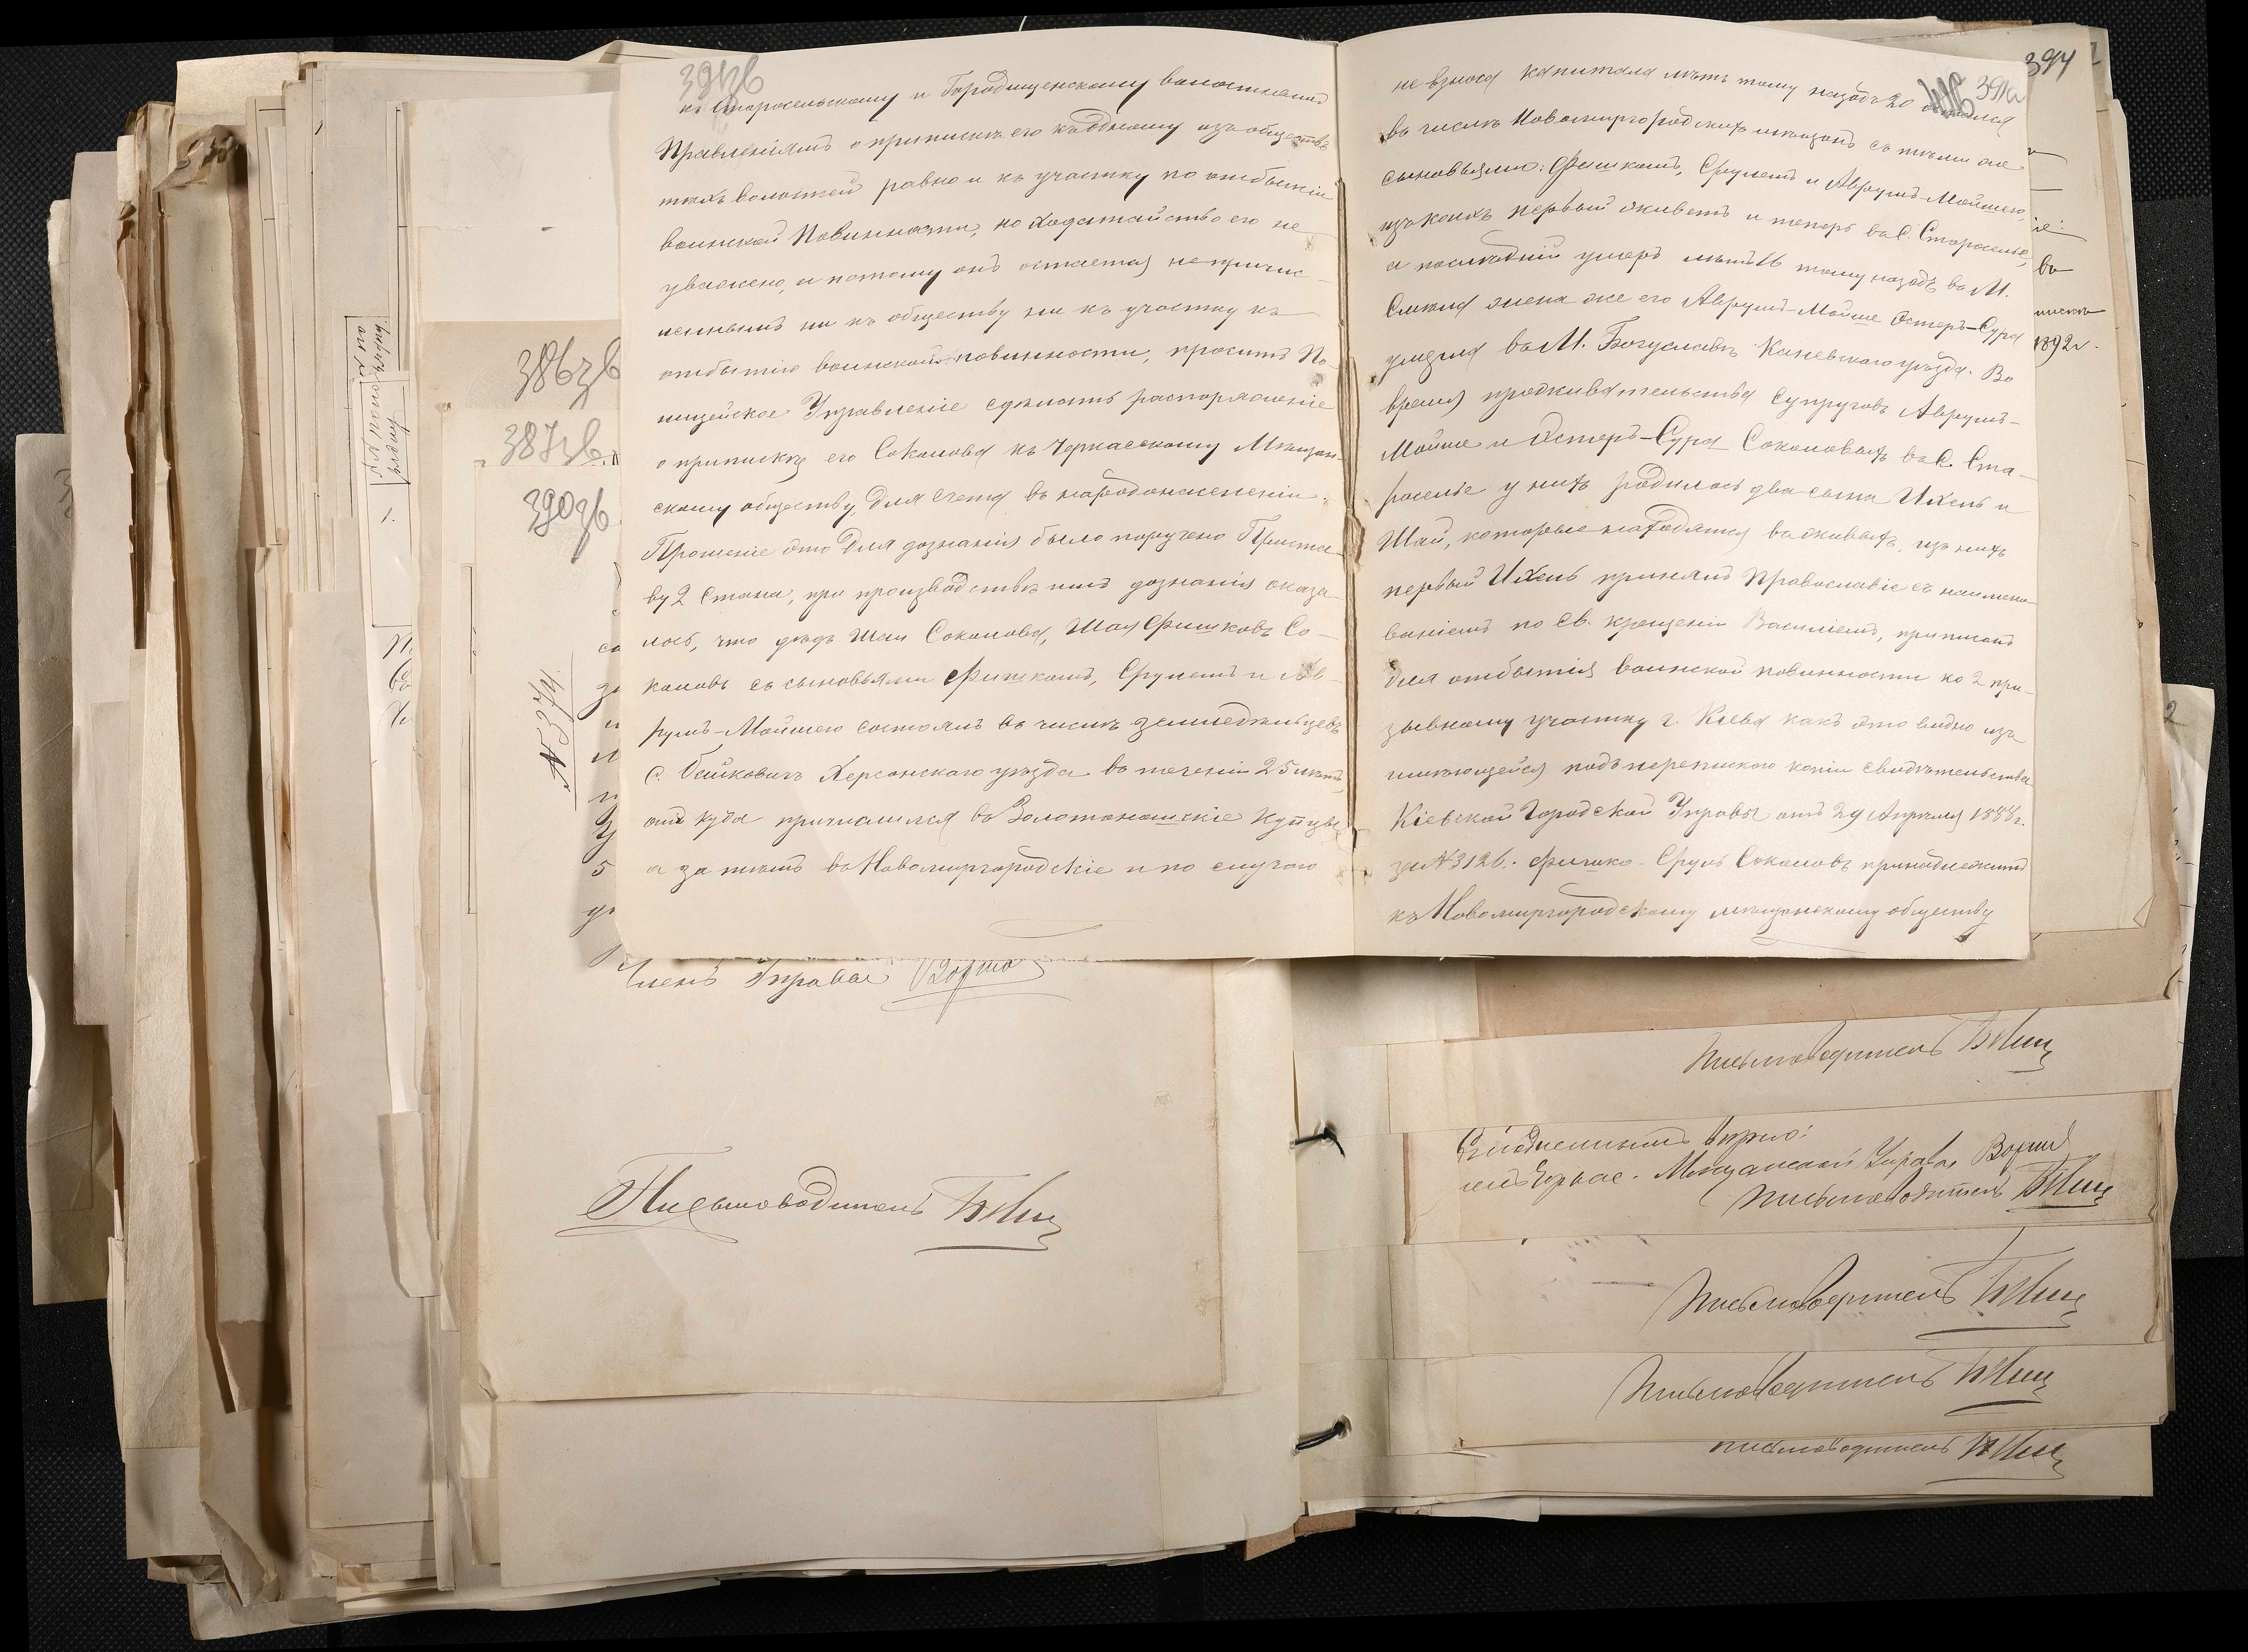 391зв
къ Старосельскому и Городищенскому волостнымъ
Правленіямъ о припискѣ его къ одному изъ обществъ
тѣхъ волостей равно и къ участку по отбытію
воинской Повинности, но ходатайство его не
уважено, а потому онъ остается не причис-
леннымъ ни къ обществу ни къ участку къ
отбытію воинской повинности, проситъ По-
лицейское Управленіе сдѣлать распоряженіе
о припискѣ его Соколова къ Черкасскому Мѣщан-
скому обществу для счета въ народонаселеніи.
Прошеніе это для дознанія было поручено Приста-
ву 2 Стана, при производствѣ имъ дознанія оказа-
лось, что дѣдъ Шаи Соколова, Шая Фишковъ Со-
коловъ съ сыновьями Фишкомъ, Срулемъ и Ав-
румъ-Мойшею состоялъ въ числѣ земледѣльцевъ
с. Херсонскаго уѣзда въ теченіи 25 лѣтъ,
отъ куда причислился въ Золотоношскіе купцы
а за тѣмъ въ Новомиргородскіе и по случаю
394
391а
не взноса капитала лѣтъ тому назадъ 20
въ числѣ Новомиргородскихъ мѣщанъ съ тѣми же
сыновьями: Фишкомъ, Срулемъ и Аврумъ-Мойшею,
изъ коихъ первый живетъ и теперь въ С. Староселье,
а послѣдній умеръ лѣтъ 16 тому назадъ въ М.
Смила жена же его Аврумъ-Мойше Эстеръ-Сура
умерла въ М. Богуславѣ Каневскаго уѣзда. Во
время проживательства супруговъ Аврумъ-
Мойше и Эстеръ-Сура Соколовыхъ въ С. Ста-
роселье у нихъ родилось два сына Ихель и
Шай, которые находятся въ живыхъ, изъ нихъ
первый Ихель принялъ Православіе съ наимено-
ваніемъ по Св. крещеніи Василіемъ, приписанъ
для отбытія воинской повинности ко 2 при-
зывному участку г. Кіева какъ это видно изъ
имѣющейся подъ перепискою копіи свидѣтельства
Кіевской Городской Управы отъ 29 Апрѣля 1888 г.
за № 3126. Фишко-Сруль Соколовъ принадлежитъ
къ Новомиргородскому мѣщанскому обществу
386зв
387зв.
390зв
№ 5374.
въ
1892 г.
Членъ Управы
Письмоводитель
Письмоводитель
вѣрно:
Черкас. Мѣщанской Управы
Письмоводитель
Письмоводитель
Письмоводитель
Письмоводитель